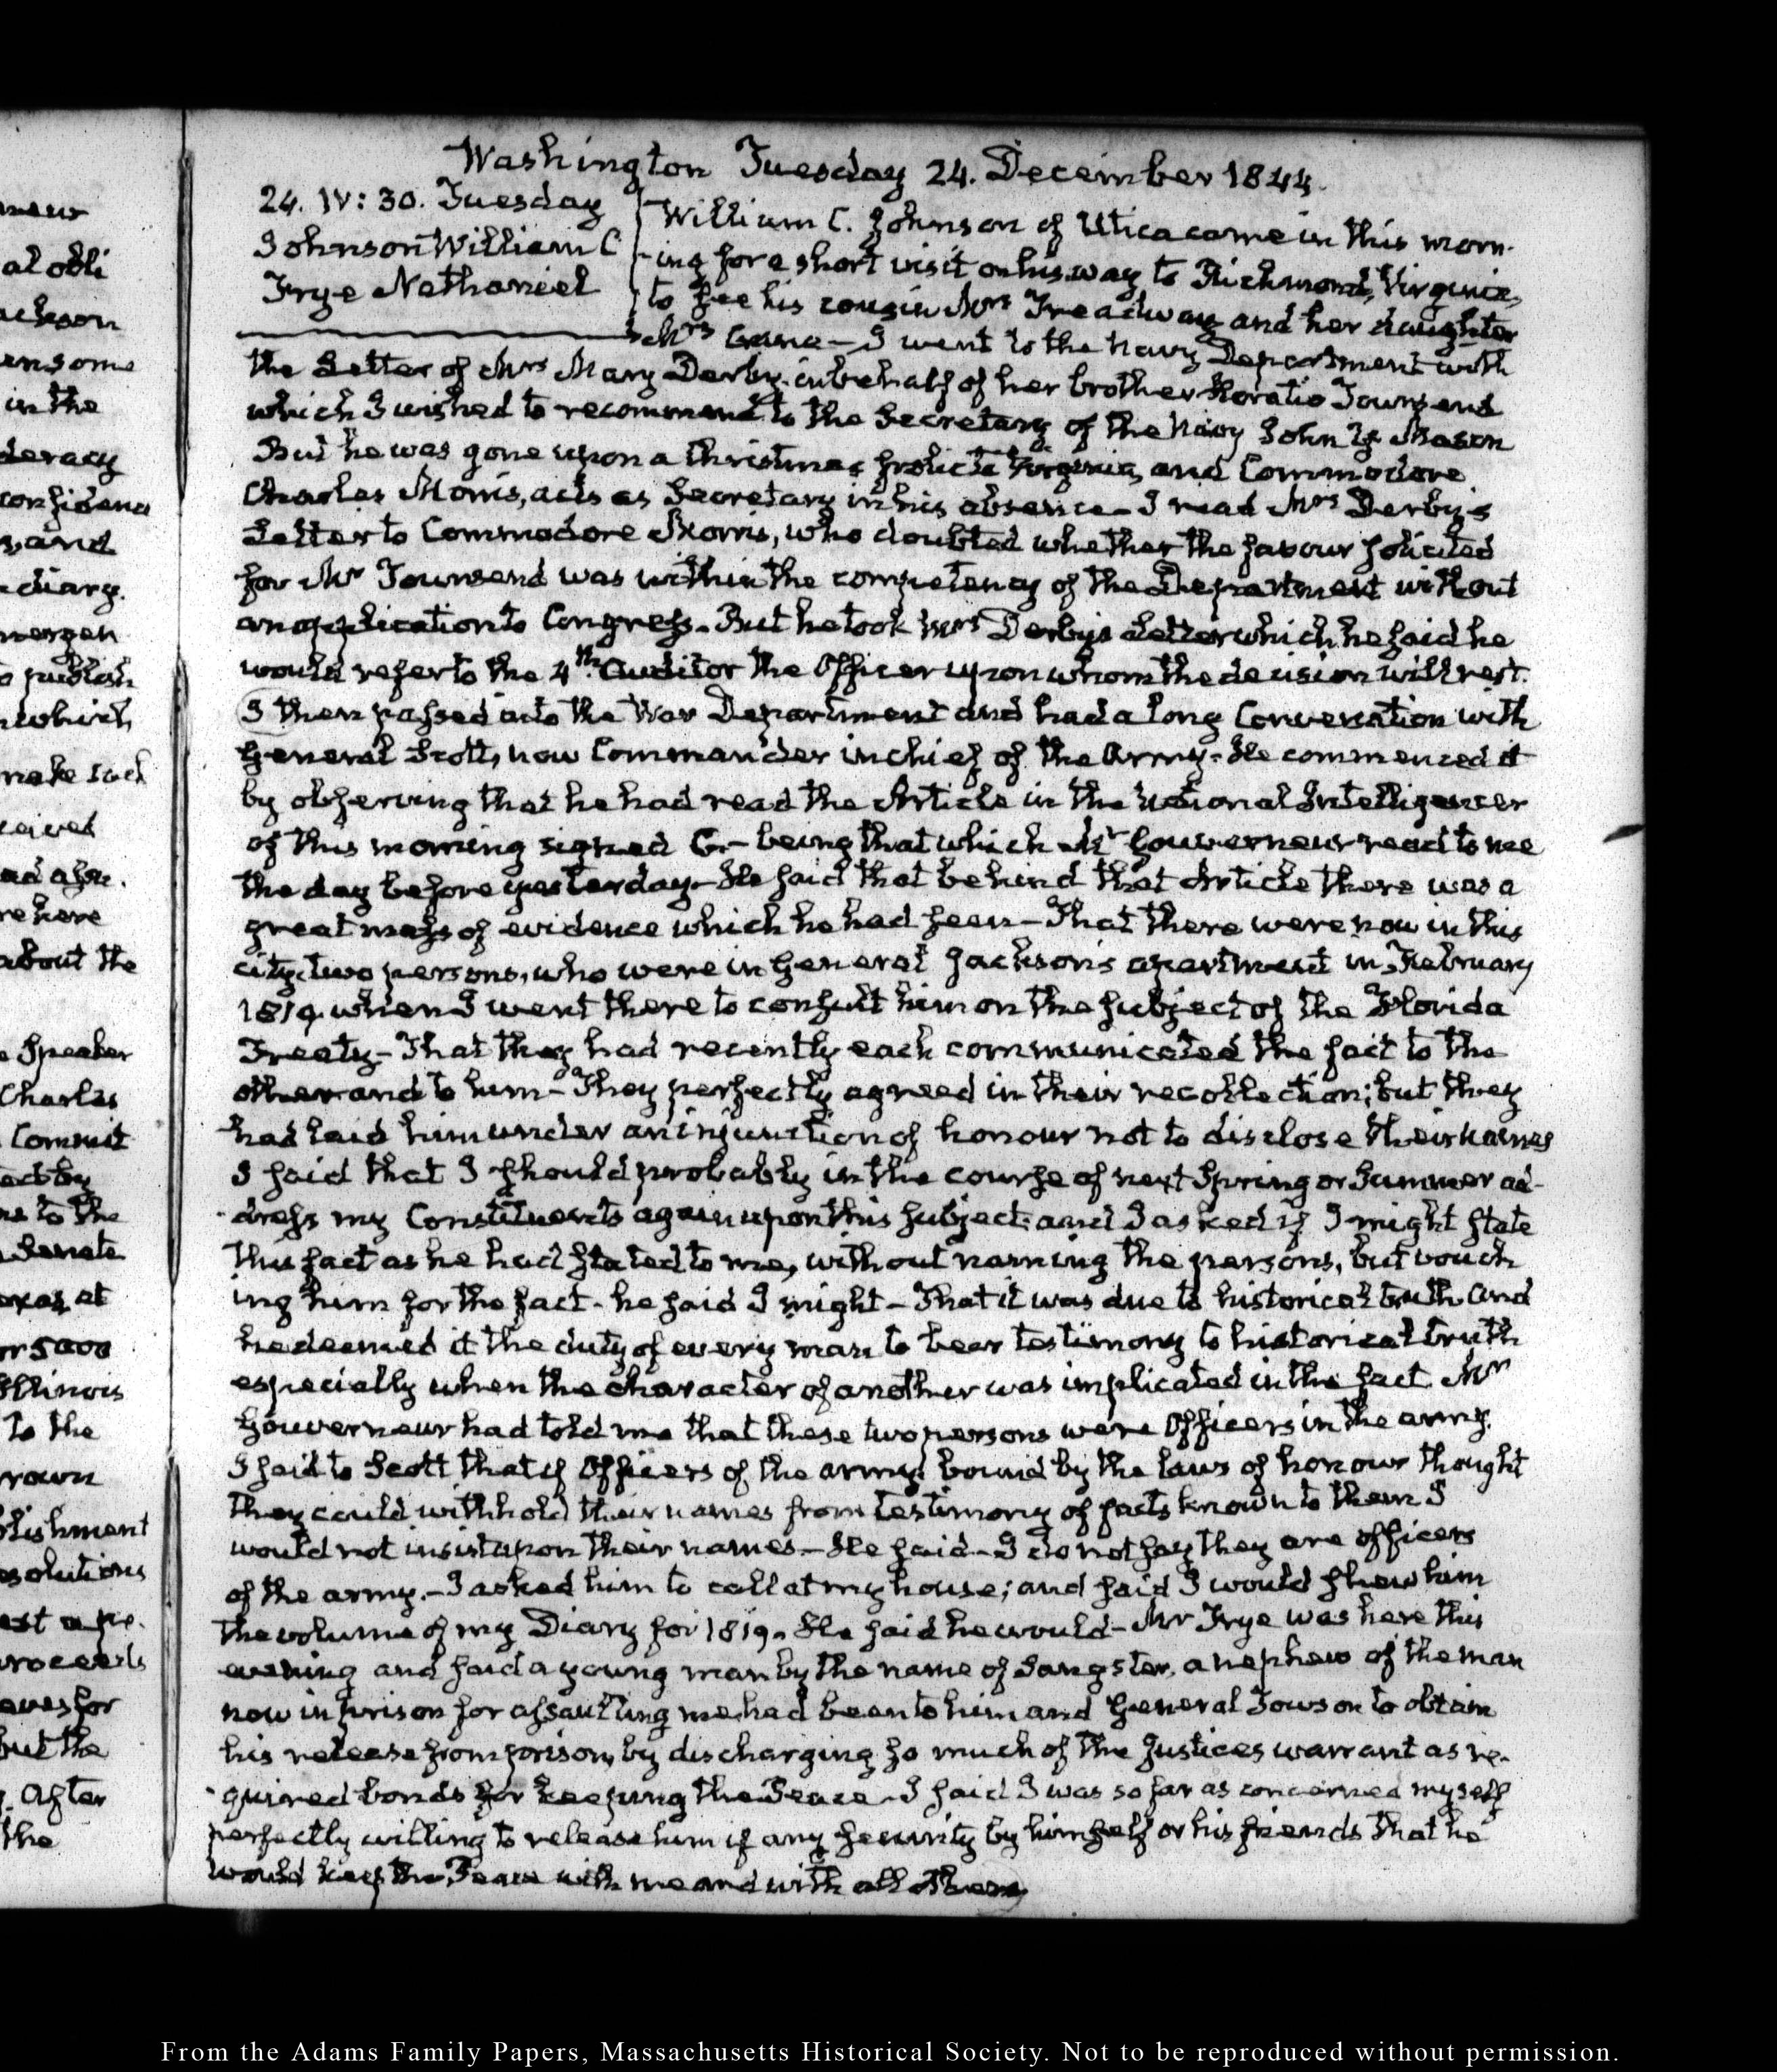 neur
al obli
ackson
ensome
in the
deracy
confidence
s, and
diary.
to publish
which
make such
ceived
ad also.
re here
about the
e Speaker
Charles
Commit
act by
ns to the
Senate
exas, at
or 5000
Illinois
to the
rown
blishment
esolutions
est a pe-
proceeds
eaves for
but the
. After
the
Washington Tuesday 24. December 1844.
24. IV: 30. Tuesday
Johnson William C
Frye Nathaniel
William C. Johnson of Utica came in this morn-
-ing for a short visit on his way to Richmond, Virginia,
to see his cousin Mrs Treadway and her daughter
Mrs — I went to the Navy Department with
the Letter of Mrs Mary Derby in behalf of her brother Horatio Townsend
which I wished to recommend to the Secretary of the Navy John Y. Mason
But he was gone upon a Christmas frolic to Virginia, and Commodore
Charles Morris, acts as Secretary in his absence— I read Mrs Derby's
Letter to Commodore Morris, who doubted whether the favour solicited
for Mr Townsend was within the competency of the Department without
an application to Congress. But he took Mrs Derby's Letter which he said he
would refer to the 4th Auditor the Officer upon whom the decision will rest.
I then passed into the War Department and had a long Conversation with
General Scott, now Commander in chief of the Army. He commenced it
by observing that he had read the Article in the National Intelligencer
of this morning signed G— being that which Mr Gouverneur read to me
the day before yesterday— He said that behind that Article there was a
great mass of evidence which he had seen— That there were now in this
city, two persons, who were in General Jackson's apartment in February
1819. when I went there to consult him on the subject of the Florida
Treaty— That they had recently each communicated the fact to the
other and to him— They perfectly agreed in their recollection; but they
had laid him under an injunction of honour not to disclose their names
I said that I should probably in the course of next Spring or Summer ad-
-dress my Constituents again upon this subject; and I asked if I might state
this fact as he had stated to me, without naming the persons, but vouch
ing him for the fact. he said I might— That it was due to historical truth and
he deemed it the duty of every man to bear testimony to historical truth
especially when the character of another was implicated in the fact Mr
Gouverneur had told me that these two persons were Officers in the army.
I said to Scott that if Officers of the army bound by the laws of honour thought
they could withhold their names from testimony of facts known to them I
would not insist upon their names— He said— I do not say they are officers
of the army.— I asked him to call at my house; and said I would shew him
the volume of my Diary for 1819. He said he would— Mr Frye was here this
evening and said a young man by the name of Sangster, a nephew of the man
now in prison for assaulting me, had been to him and General Towson to obtain
his release from prison, by discharging so much of the Justices warrant as re-
-quired bonds for keeping the Peace— I said I was so far as concerned myself
perfectly willing to release him if any security by himself or his friends that he
would keep the Peace with me and with all others
From the Adams Family Papers, Massachusetts Historical Society. Not to be reproduced without permission.